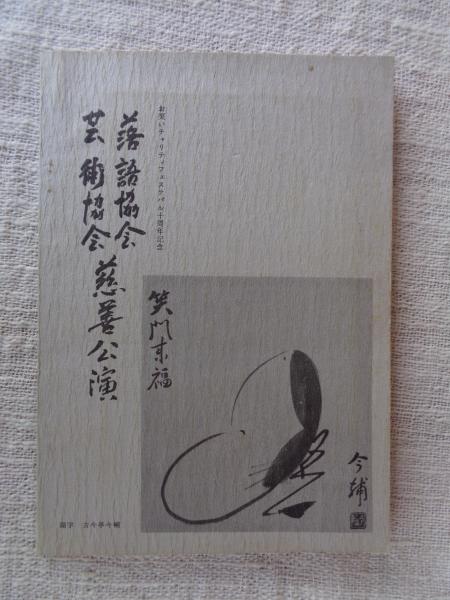 お笑いチャリティフェスティバル十周年記念
落語協会
芸術協会
慈善公演
笑門来福
今輔
題字 古今亭今輔